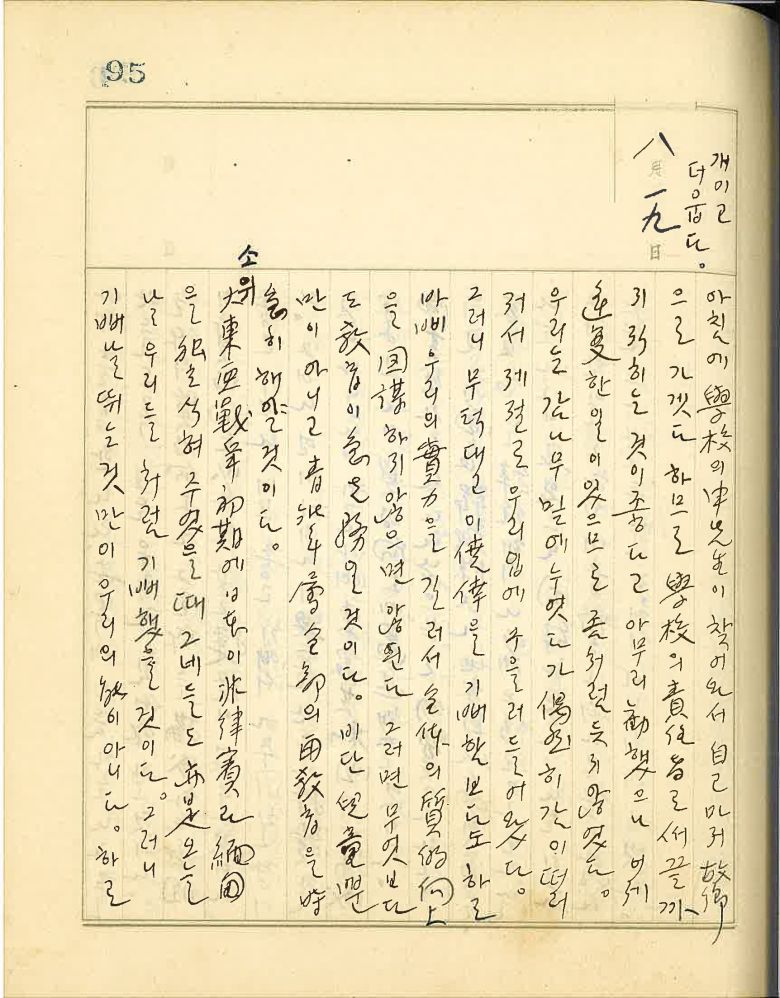 95
八月一九日
개이고
더웁다。
아침에 學校의 申先生이 찾어와서 自己마저 故鄕
으로 가겟다 하므로 學校의 責任者로서 끝까
지 잇는 것이 좋다고 아무리 勸했으나 어제
逢變한 일이 있으므로 좀처럼 듯지 않엇다。
우리는 감나무 밑에 누엇다가 偶然히 감이 떨러
저서 제절로 우리 입에 구을러 들어왔다。
그러니 무턱대고 이 僥倖을 기뻐할 보다도 하로
바삐 우리의 實力을 길러서 全体의 質的 向上
을 圖謀하지 않으면 않된다 그러면 무엇보다
도 敎育이 急先務일 것이다。 비단 兒童뿐
만이 아니고 靑年層 全部의 再敎育을 時
急히 해야 할 것이다。
소위 大東亞戰爭 初期에 日本이 非律賓과 緬甸
을 獨立식혀 주었을 때 그네들도 亦是 오늘
날 우리들처럼 기뻐했을 것이다。 그러니
기뻐 날뛰는 것만이 우리의 能이 아니다。 하로